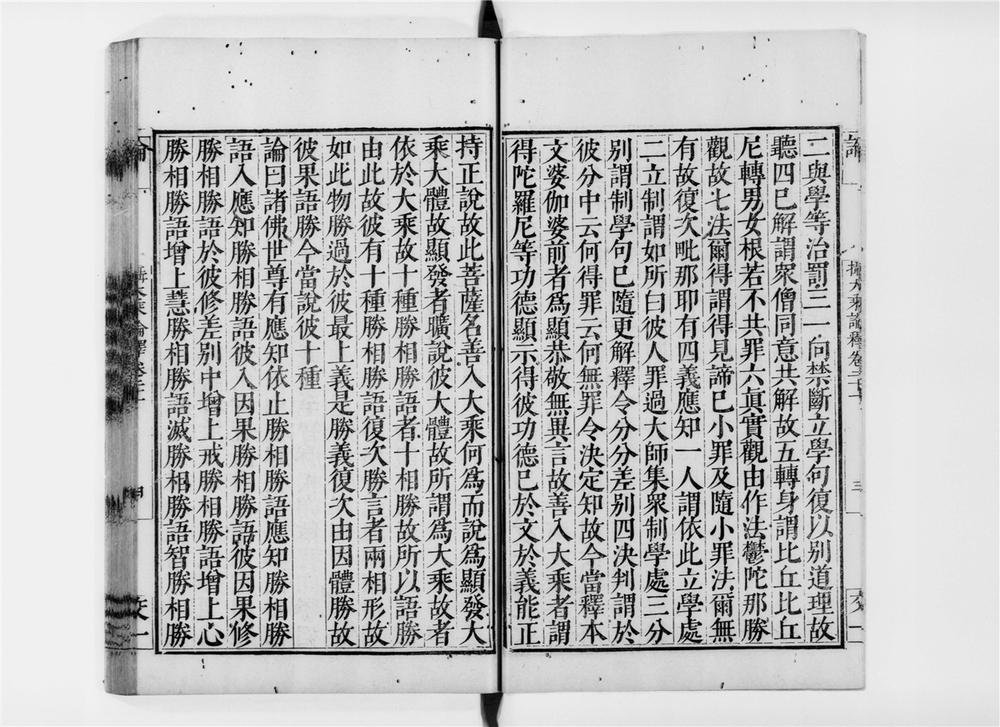 二與學等治罰三一向禁斷立學句復以別道理故
聽四已解謂衆僧同意共解故五轉身謂比丘比丘
尼轉男女根若不共罪六眞實觀由作法鬱陀那勝
觀故七法爾得謂得見諦已小罪及隨小罪法爾無
有故復次毗那耶有四義應知一人謂依此立學處
二立制謂如所白彼人罪過大師集衆制學處三分
別謂制學句已隨更解釋令分分差別四決判謂於
彼分中云何得罪云何無罪令決定知故今當釋本
文婆伽婆前者爲顯恭敬無異言故善入大乘者謂
得陀羅尼等功德顯示得彼功德已於文於義能正
持正說故此菩薩名善入大乘何爲而說爲顯發大
乘大體故顯發者曠說彼大體故所謂爲大乘故者
依於大乘故十種勝相勝語者十相勝故所以語勝
由此故彼有十種勝相勝語復次勝言者兩相形故
如此物勝過於彼最上義是勝義復次由因體勝故
彼果語勝今當說彼十種
論曰諸佛世尊有應知依止勝相勝語應知勝相勝
語入應知勝相勝語彼入因果勝相勝語彼因果修
勝相勝語於彼修差別中增上戒勝相勝語增上心
勝相勝語增上慧勝相勝語滅勝相勝語智勝相勝